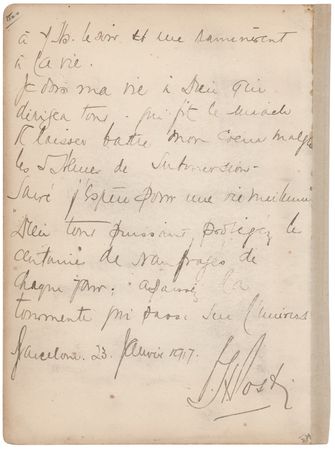 à 4 h. le soir et me ramenèrent
à la vie.
Je dois ma vie à Dieu qui
dirigea tout. qui fit le miracle
laisser battre mon Coeur malgré
les 5 heures de Submersion.
Sauvé j'Espère pour une vie meilleure
Dieu tout puissant protégez les
centaines de Naufragés de
chaque jour. apaisez la
tourmente qui passe sur l'univers
Barcelona. 23 Janvier 1917.